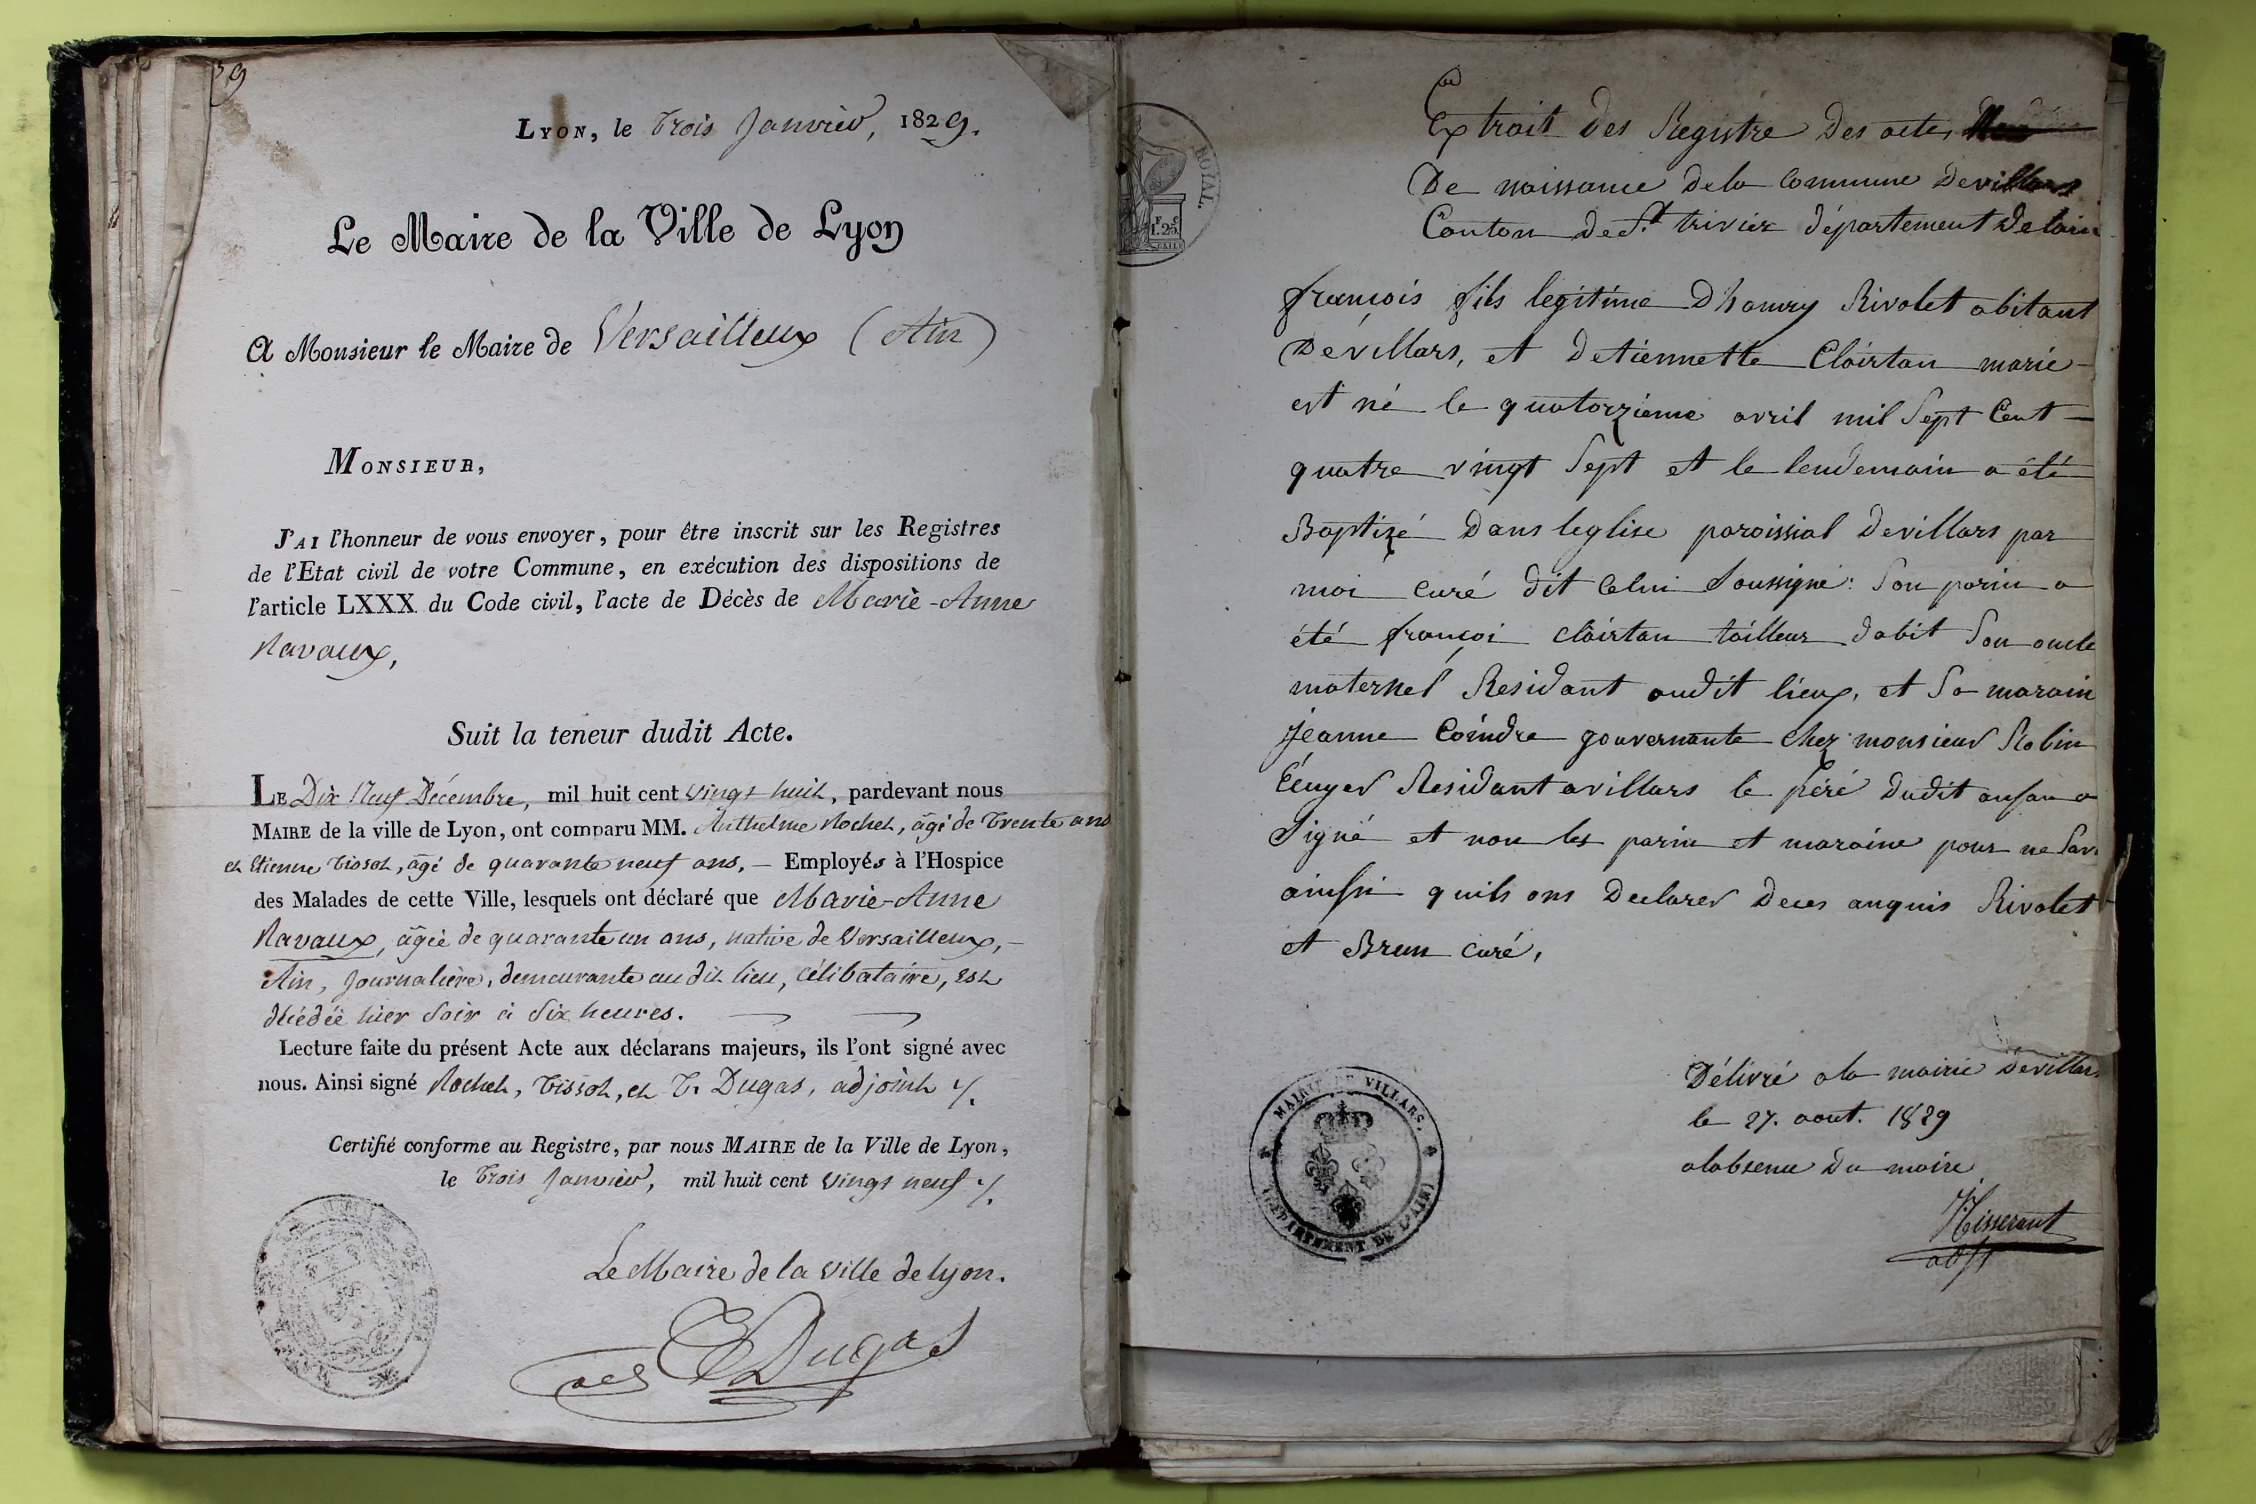 39
LYON, le trois Janvier, 1829.
Le Maire de la Ville de Lyon
A Monsieur le Maire de Versailleux (Ain)
MONSIEUR,
J'AI l'honneur de vous envoyer, pour être inscrit sur les Registres
de l'Etat civil de votre Commune, en exécution des dispositions de
l'article LXXX du Code civil, l'acte de Décès de Marie-Anne
Navaux,
Suit la teneur dudit Acte.
LE Dix Neuf Décembre, mil huit cent vingt huit, pardevant nous
MAIRE de la ville de Lyon, ont comparu MM. Anthelme Rochet, âgé de trente ans
et Etienne Tissot, âgé de quarante neuf ans, — Employés à l'Hospice
des Malades de cette Ville, lesquels ont déclaré que Marie-Anne
Navaux, âgée de quarante un ans, native de Versailleux, —
Ain, Journalière, demeurante au dit lieu, célibataire, est
décédée hier soir à six heures.
Lecture faite du présent Acte aux déclarans majeurs, ils l'ont signé avec
nous. Ainsi signé Rochet, Tissot, et T. Dugas, adjoint
Certifié conforme au Registre, par nous MAIRE de la Ville de Lyon,
le trois Janvier, mil huit cent vingt neuf
Le Maire de la ville de Lyon.
Dugas
ROYAL.
F. C
1.25
Extrait des Registre des actes
De naissance dela Commune devillars
Canton de St. trivier département delain
françois fils legitime D'hanry Rivolet abitant
Devillars, et detiennette Clairtan marié
est né le quatorzieme avril mil Sept Cent
quatre vingt Sept et le lendemain a été
Baptizé dans leglise paroissial devillars par
moi curé dit celui Soussigné: Son parin a
été françoi clairtan tailleur dabit Son oncle
maternel Residant audit lieux, et Sa marain
jeanne Coindre gouvernante chez monsieur Robin
Ecuyer Residant avillars le péré dudit anfan a
Signé et non les parin et maraine pour ne Sav
ainssi quils ons Declarer deces anquis Rivolet
et Brun curé,
Délivré ala mairie devillars
le 27. aout. 1829
alabsence du maire
Tisserant
adjt
MAIRIE DE VILLARS.
(DÉPARTEMENT DE L'AIN)